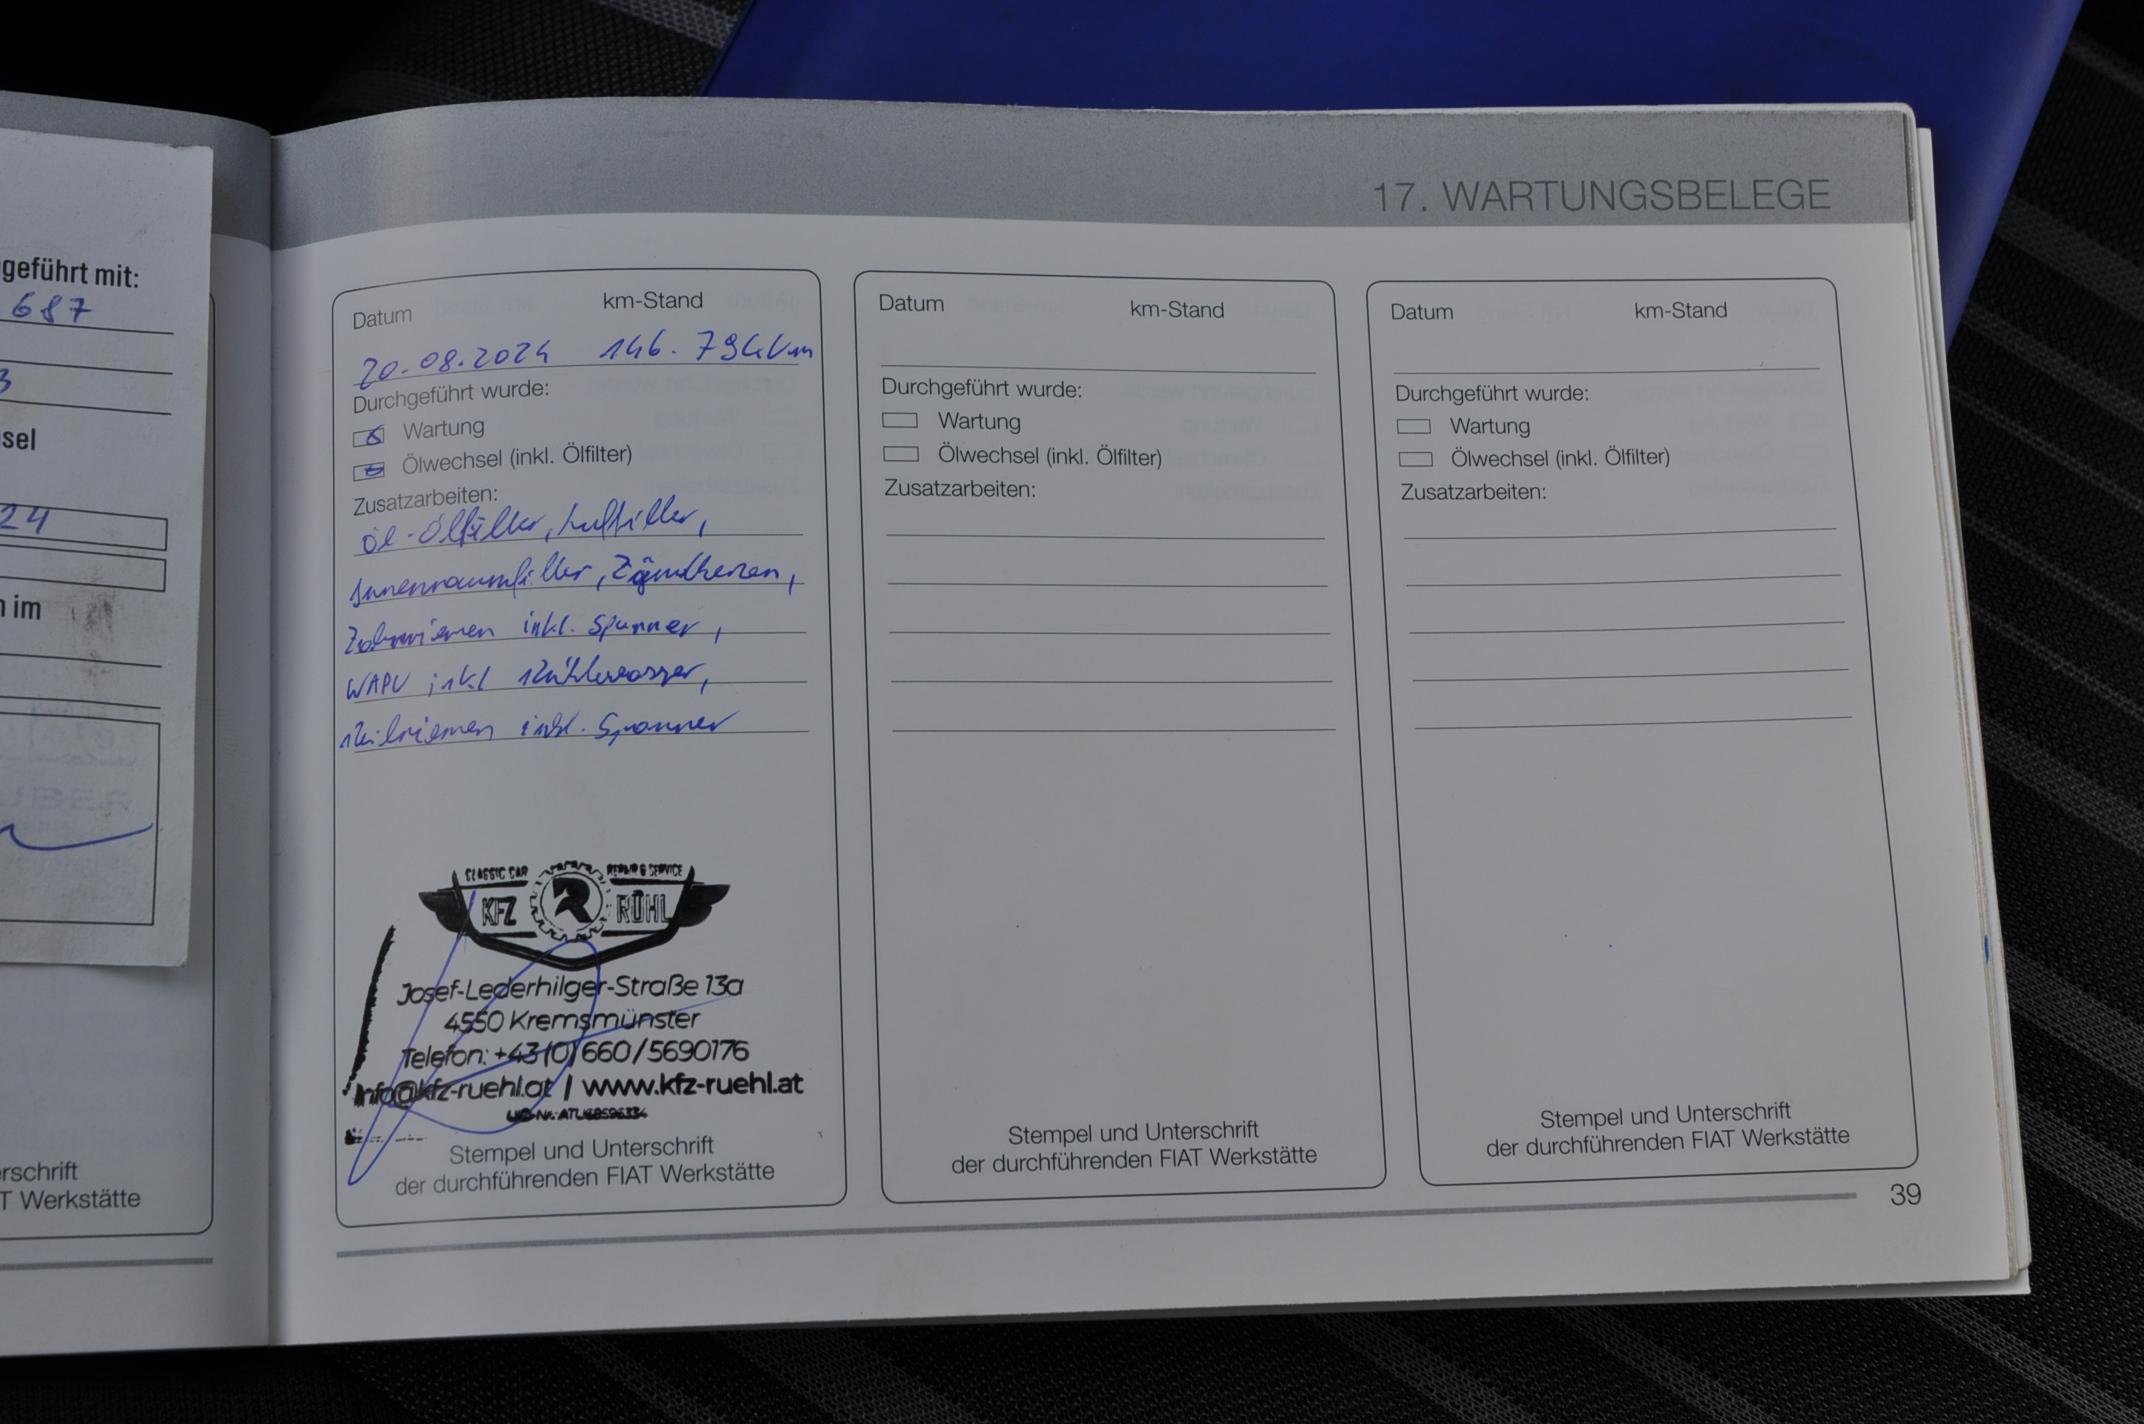 geführt mit:
687
3
sel
24
n im
rschrift
T Werkstätte
17. WARTUNGSBELEGE
Datum km-Stand
20.08.2024 146.794km
Durchgeführt wurde:
Wartung
Ölwechsel (inkl. Ölfilter)
Zusatzarbeiten:
Öl-Ölfilter, Luftfilter,
Innenraumfilter, Zündkerzen,
Zahnriemen inkl. Spanner,
WAPU inkl Kühlwasser,
Keilriemen inkl. Spanner
CLASSIC CAR REPAIR & SERVICE
KFZ R RÜHL
Josef-Lederhilger-Straße 13a
4550 Kremsmünster
Telefon: +43(0)660/5690176
info@kfz-ruehl.at | www.kfz-ruehl.at
UID-Nr.:
Stempel und Unterschrift
der durchführenden FIAT Werkstätte
Datum km-Stand
Durchgeführt wurde:
Wartung
Ölwechsel (inkl. Ölfilter)
Zusatzarbeiten:
Stempel und Unterschrift
der durchführenden FIAT Werkstätte
Datum km-Stand
Durchgeführt wurde:
Wartung
Ölwechsel (inkl. Ölfilter)
Zusatzarbeiten:
Stempel und Unterschrift
der durchführenden FIAT Werkstätte
39